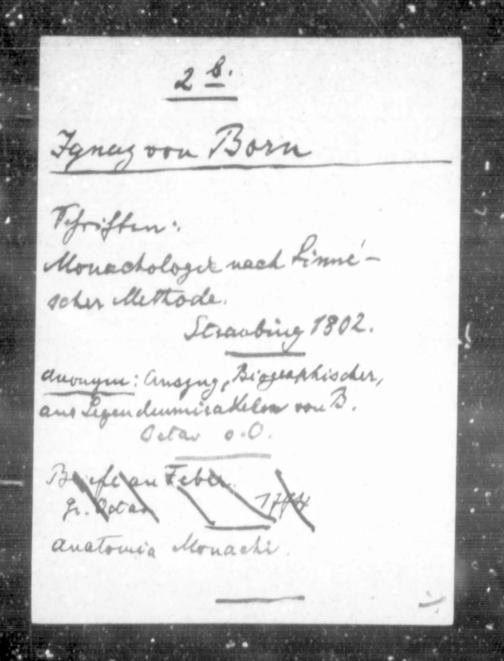 2 B.
Ignaz von Born
Schriften:
Monachologie nach Linné-
scher Methode.
Straubing 1802.
anonym: Auszug, Biographischer,
aus Legendenmirakeln von B.
Octav o.O.
Briefe an Feber.
gr. Octav 1774
Anatomia Monachi.